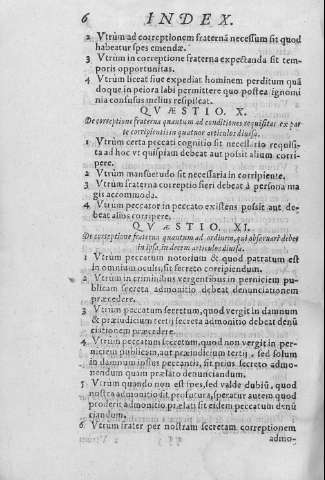 6 INDEX.
2 Vtrùm ad correptionem fraternã necessum sit quod
habeatur spes emendæ.
3 Vtrùm in correptione fraterna expectanda sit tem-
poris opportunitas.
4 Vtrùm liceat siue expediat hominem perditum quã
doque in peiora labi permittere quo postea ignomi
nia confusus melius resipiscat.
QVÆSTIO. X.
De correptione fraterna quantum ad conditiones requisitas ex par
te corripientium quatuor articulos diuisa.
1 Vtrùm certa peccati cognitio sit necessario requisi-
ta ad hoc vt quispiam debeat aut possit alium corri-
pere.
2 Vtrùm mansuetudo sit necessaria in corripiente.
3 Vtrùm fraterna correptio fieri debeat à persona ma
gis accommoda.
4 Vtrùm peccator in peccato existens possit aut de-
beat alios corripere.
QVÆSTIO. XI.
De correptione fraterna quantum ad ordinem, qui obseruari debet
in ipsa, in decem articulos diuisa.
1 Vtrùm peccatum notorium & quod patratum est
in omnium oculis, sit secretò corripiendum.
2 Vtrùm in criminibus vergentibus in perniciem pu-
blicam secreta admonitio debeat denunciationem
præcedere.
3 Vtrùm peccatum secretum, quod vergit in damnum
& præiudicium tertij secreta admonitio debeat denũ
ciationem præcedere.
4 Vtrùm peccatum secretum, quod non vergit in per-
niciem publicam, aut præiudicium tertij, sed solum
in damnum ipsius peccantis, sit prius secretò admo-
nendum quàm prælato denunciandum.
5 Vtrùm quando non est spes, sed valde dubiũ, quod
nostra admonitio sit profutura, speratur autem quod
proderit admonitio prælati sit eidem peccatum denũ
ciandum.
6 Vtrùm frater per nostram secretam correptionem
admo-